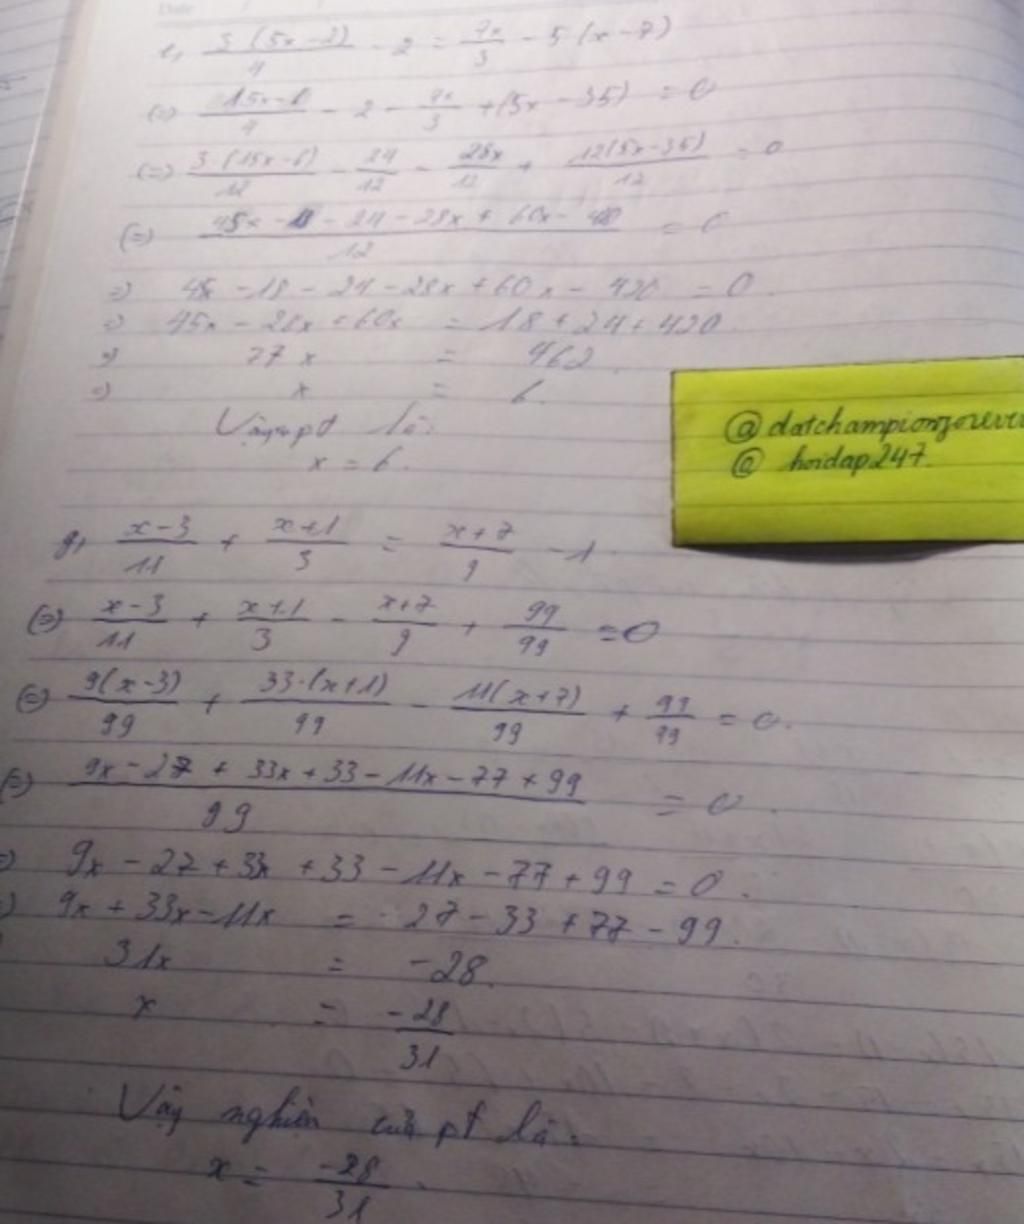 e, 3(5x-2)/4 - 2 = 7x/3 - 5(x-7)
(=) 15x-6/4 - 2 - 7x/3 + (5x - 35) = 0
(=) 3.(15x-6)/12 - 24/12 - 28x/12 + 12(5x-35)/12 = 0
(=) 45x - 18 - 24 - 28x + 60x - 420/12 = 0
=) 45x - 18 - 24 - 28x + 60x - 420 = 0.
=) 45x - 28x + 60x = 18 + 24 + 420
=) 77x = 462
=) x = 6.
Vậy pt là:
x = 6.
@datchampionforever
@ hoidap247.
g, x-3/11 + x+1/3 = x+7/9 - 1
(=) x-3/11 + x+1/3 - x+7/9 + 99/99 = 0
(=) 9(x-3)/99 + 33.(x+1)/99 - 11(x+7)/99 + 99/99 = 0.
(=) 9x - 27 + 33x + 33 - 11x - 77 + 99/99 = 0.
=) 9x - 27 + 33x + 33 - 11x - 77 + 99 = 0.
=) 9x + 33x - 11x = 27 - 33 + 77 - 99.
31x = -28.
x = -28/31
Vậy nghiệm của pt là:
x = -28/31.